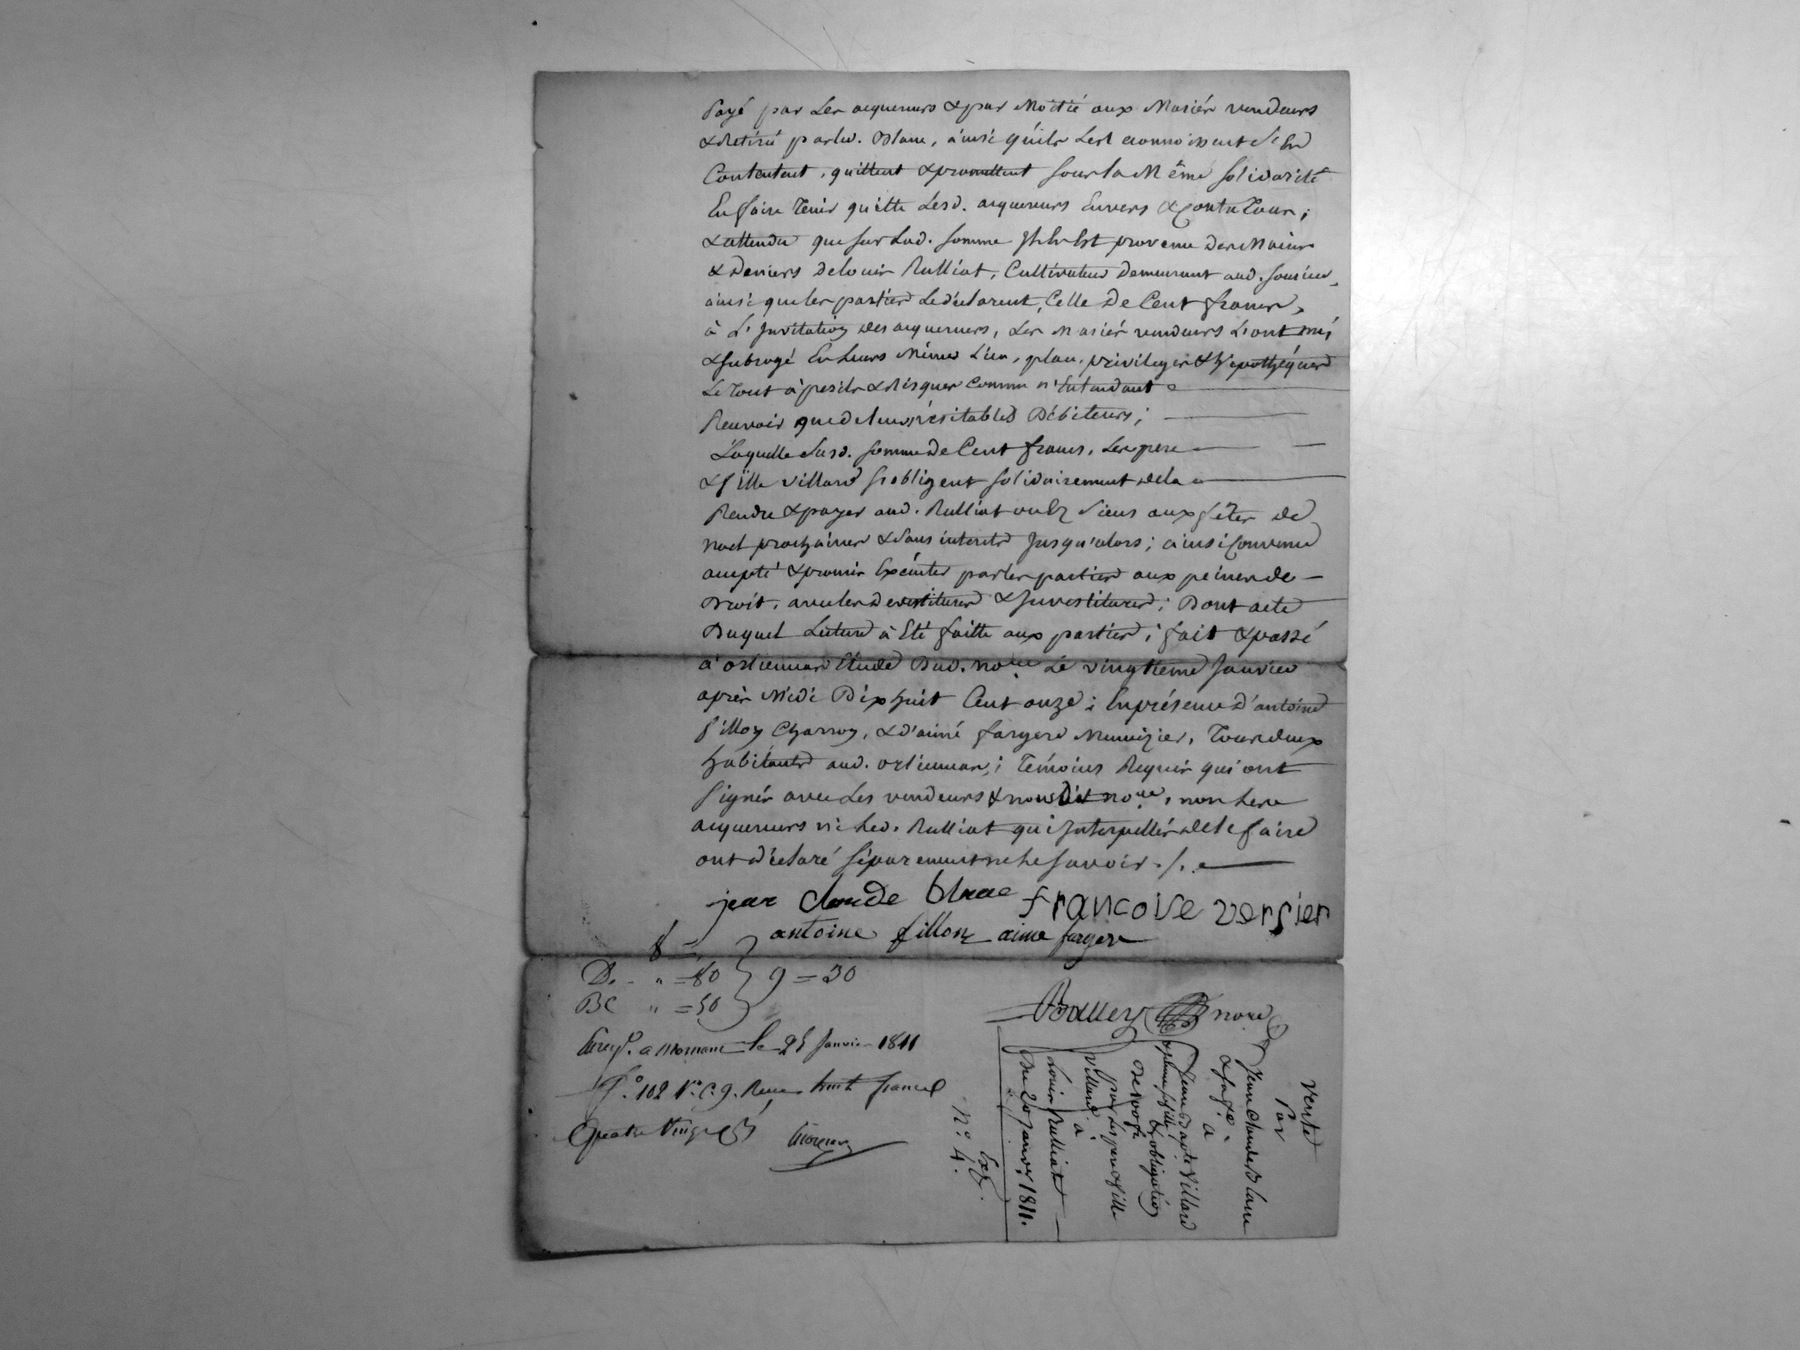 Payé par Les acquereurs & par Moitié aux Mariés vendeurs
& Retiré par led. Blanc, ainsi qu'ils Le Reconnoissent S'en
Contentent, quittent & promettent sous la Même solidarité
En faire Tenir quitte Lesd. acquereurs Envers & Contre Tous;
& attendu que sur Lad. somme Il En Est provenu des Mains
& Deniers de Louis Rulliat, Cultivateur demeurant aud.
ainsi que les parties Le déclarent, Celle De Cent francs,
à L'Invitation des acquereurs, Les Mariés vendeurs L'ont mis
& subrogé En Leurs Mêmes Lieu, place, privileges & hypothéques
Le Tout à perils & Risques Comme n'Entendant
Recevoir que de Leurs véritables Débiteurs;
Laquelle Susd. somme De Cent francs, Les pere
& fille villard s'obligent solidairement de la
Rendre & payer aud. Rulliat ou Es siens aux fêtes de
noel prochaines & sans interets Jusqu'alors; ainsi Convenu
accepté & promis Exécuter par les parties aux peines de
Droit, avec les devestitures & Investitures; Dont acte
Duquel Lecture à Eté faitte aux parties; fait & passé
à orlienas Etude Dud. no.re Le vingtieme Janvier
après Midi Dix huit Cent onze; En présence d'antoine
fillon Charron, & d'aimé fargere Menuizier, Tous deux
habitants aud. orlienas; Témoins Requis qui ont
signés avec Les vendeurs & nous Dit no.re, non Les
acquereurs ni Led. Rulliat qui Interpellés de le faire
ont déclaré séparement ne Le savoir ./.
jean claude blanc francoise versier
antoine fillon aime fargere
8 =
D. " = 80 } 9 = 30
BC " = 50
no.re
Enreg.é a Mornant le 25 Janvier 1811
f.o 102 V.o C. 9. Reçu huit francs
Quatre Vingt
Vente
Par
Jean Claude Blanc
& sa fe.
à
Jean Bapte. Villard
& sa fille & obligation
De 100 f.
par Les pere & fille
Villard à
Louis Rulliat
Du 20 Janv. 1811.
Exp.
N.o 4.